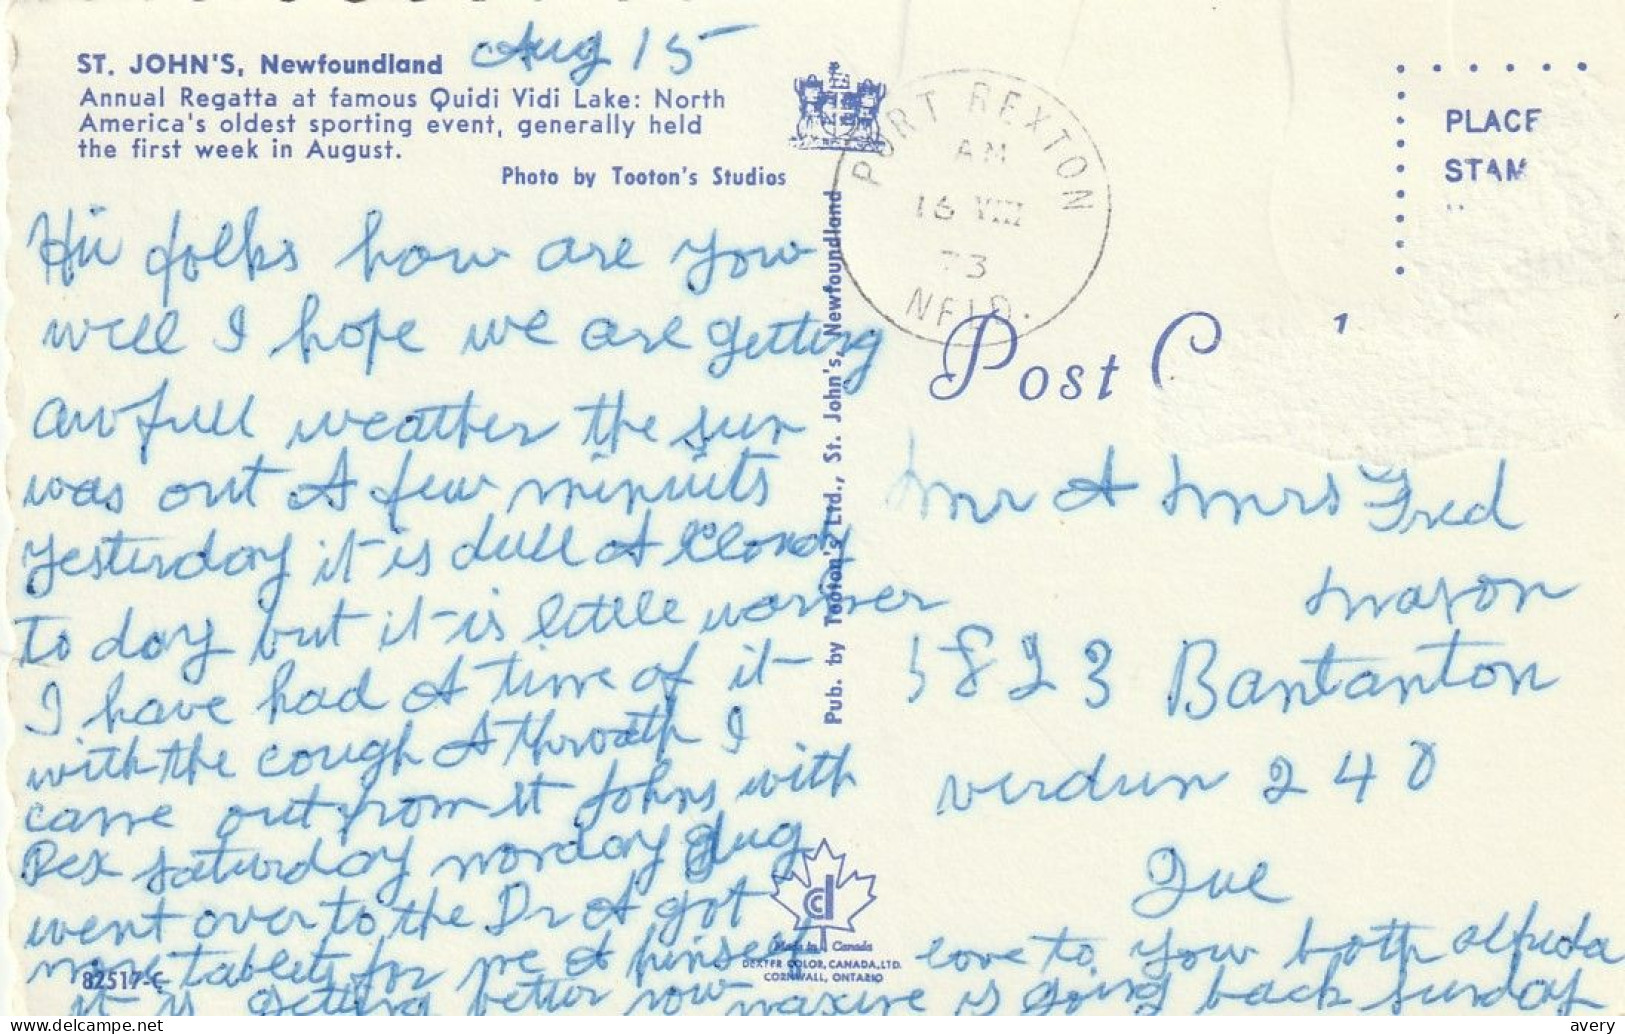 ST. JOHN'S, Newfoundland Aug 15
Annual Regatta at famous Quidi Vidi Lake: North
America's oldest sporting event, generally held
the first week in August.
Photo by Tooton's Studios
Hii folks how are yow
well I hope we are getting
awfull weather the sun
was out & a few minuits
yesterday it is dull & Cloudy
to day but it is little warmer
I have had A time of it
with the cough & throath I
came out from St Johns with
Rex saturday monday Aug
went over to the Dr & got
more tablets for me & hinself
it is getting better now maxine is going back sunday
love to yow both alfreda
82517-C
Pub. by Tooton's Ltd., St. John's, Newfoundland
PORT REXTON
AM
16 VIII
73
NFLD.
PLACE
STAM
Post C
Mr & Mrs Fred
Mason
5823 Bantanton
verdun 240
Que
cd
Made in Canada
DEXTER COLOR, CANADA, LTD.
CORNWALL, ONTARIO
avery
delcampe.net